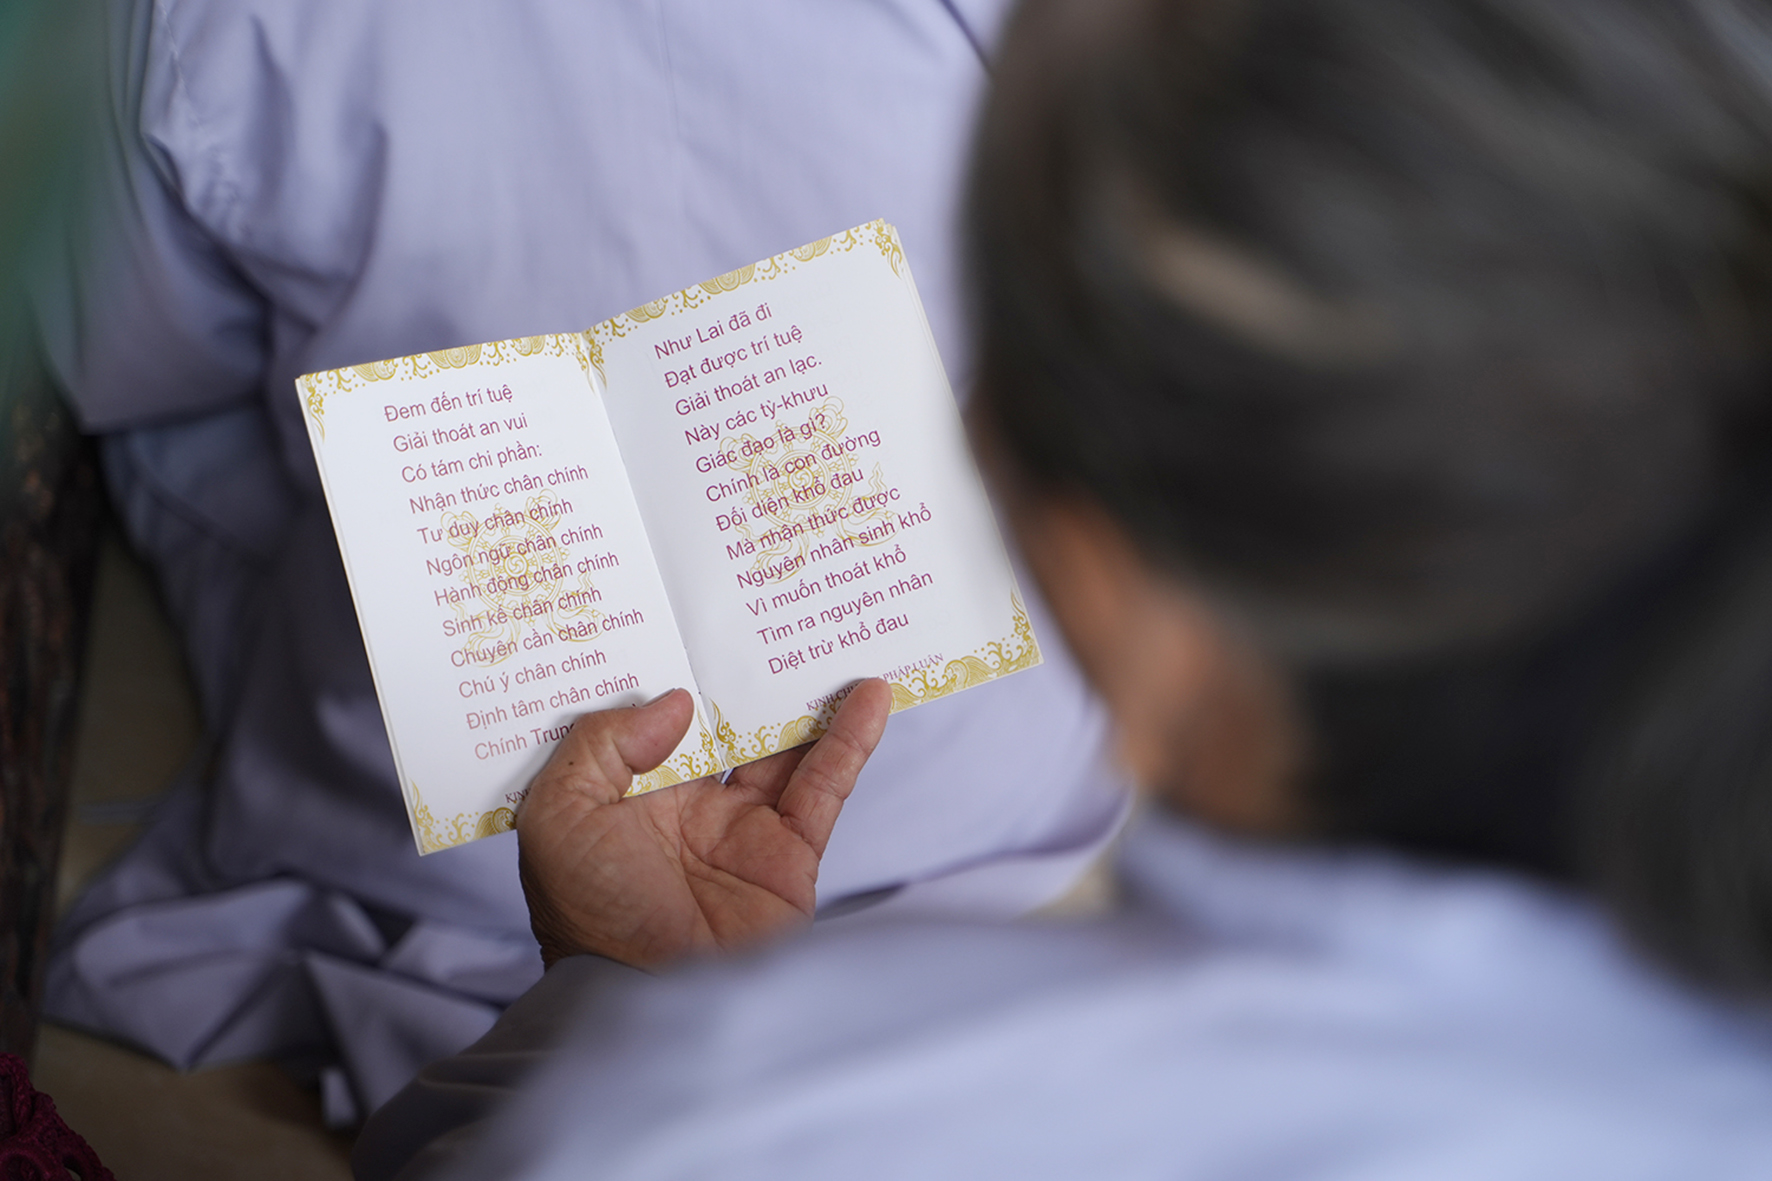 Đem đến trí tuệ
Giải thoát an vui
Có tám chi phần:
Nhận thức chân chính
Tư duy chân chính
Ngôn ngữ chân chính
Hành động chân chính
Sinh kế chân chính
Chuyên cần chân chính
Chú ý chân chính
Định tâm chân chính
Chính
Như Lai đã đi
Đạt được trí tuệ
Giải thoát an lạc.
Này các tỳ-khưu
Giác đạo là gì?
Chính là con đường
Đối diện khổ đau
Mà nhận thức được
Nguyên nhân sinh khổ
Vì muốn thoát khổ
Tìm ra nguyên nhân
Diệt trừ khổ đau
KINH PHÁP LUÂN